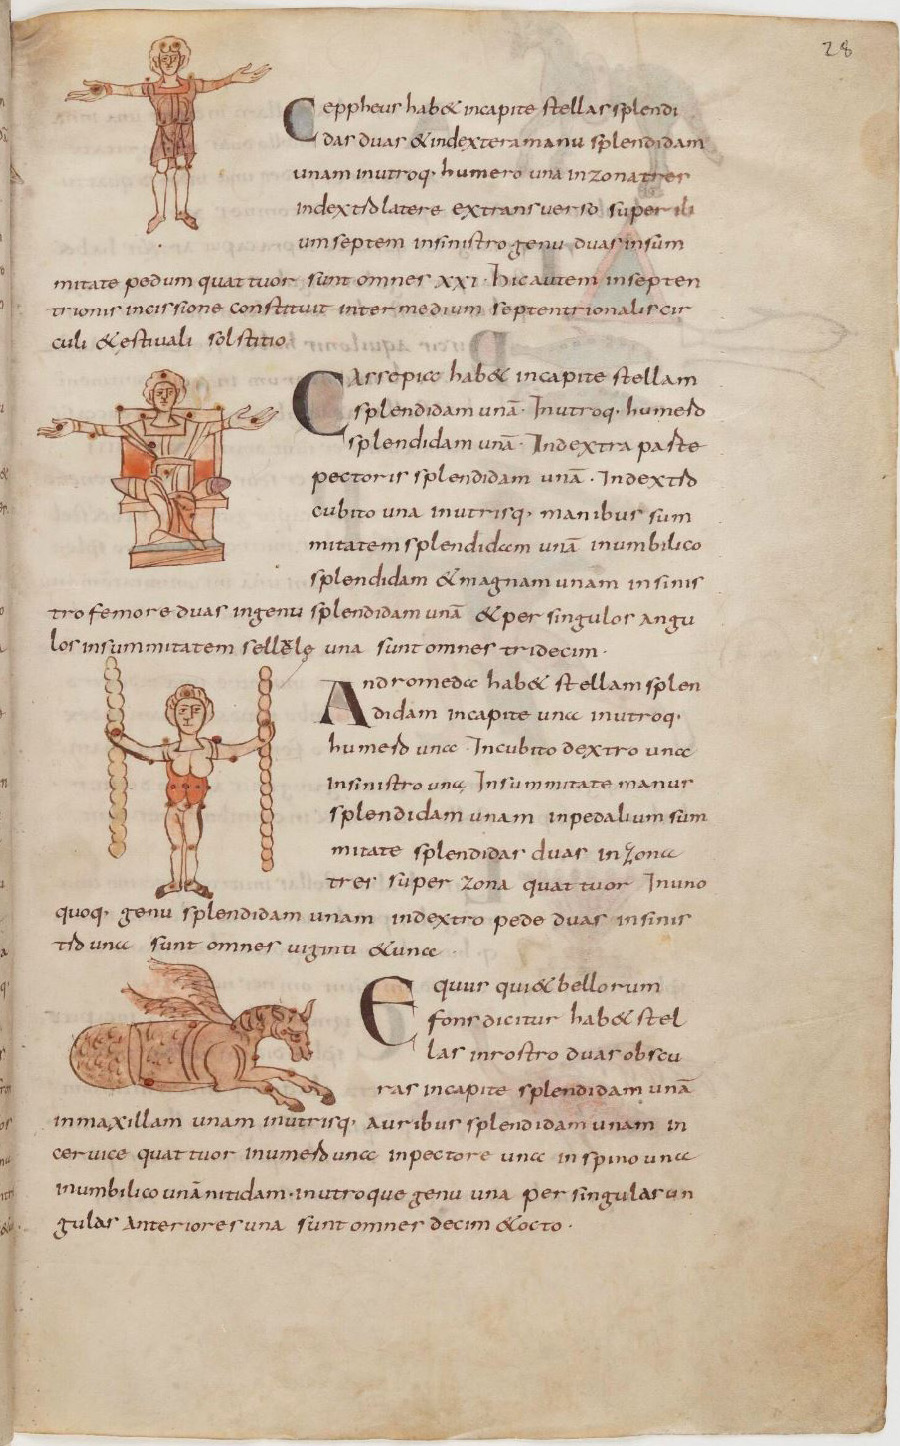 28
Ceppheus hab& incapite stellas splendi
das duas &indextera manu splendidam
unam inutroq· humero una inzona tres
indextro latere extransverso super ili
um septem insinistro genu duas insum
mitate pedum quattuor sunt omnes xxi· hic autem insepten
trionis incissione constituit inter medium septentrionalis cir
culi &estivali solstitio
Cassepia hab& incapite stellam
splendidam unā· Inutroq· humero
splendidam unā· Indextra parte
pectoris splendidam unā· Indextro
cubito una inutrisq· manibus sum
mitatem splendidam unā inumbilico
splendidam &magnam unam insinis
tro femore duas ingenu splendidam unā &per singulos angu
los insummitatem una sunt omnes tridecim·
Andromeda hab& stellam splen
didam incapite una inutroq·
humero una Incubito dextro una
insinistro una Insummitate manus
splendidam unam inpedalium sum
mitate splendidas duas inzona
tres super zona quattuor Inuno
quoq· genu splendidam unam indextro pede duas insinis
tro una sunt omnes uiginti &una·
Equus qui&bellorum
fons dicitur hab& stel
las inrostro duas obscu
ras incapite splendidam unā
inmaxillam unam inutrisq· auribus splendidam unam in
cervice quattuor inumero una inpectore una inspino una
inumbilico unā nitidam· inutroque genu una per singulas un
gulas anteriores una sunt omnes decim &octo·